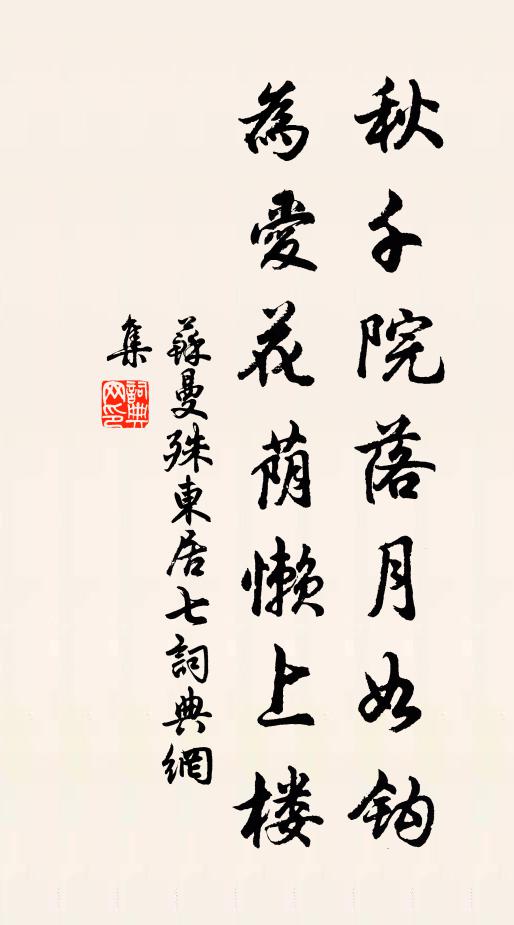 秋千院落月如钩
為愛花荫懒上楼
蘇曼殊東居七詞典網
集
詞典網印